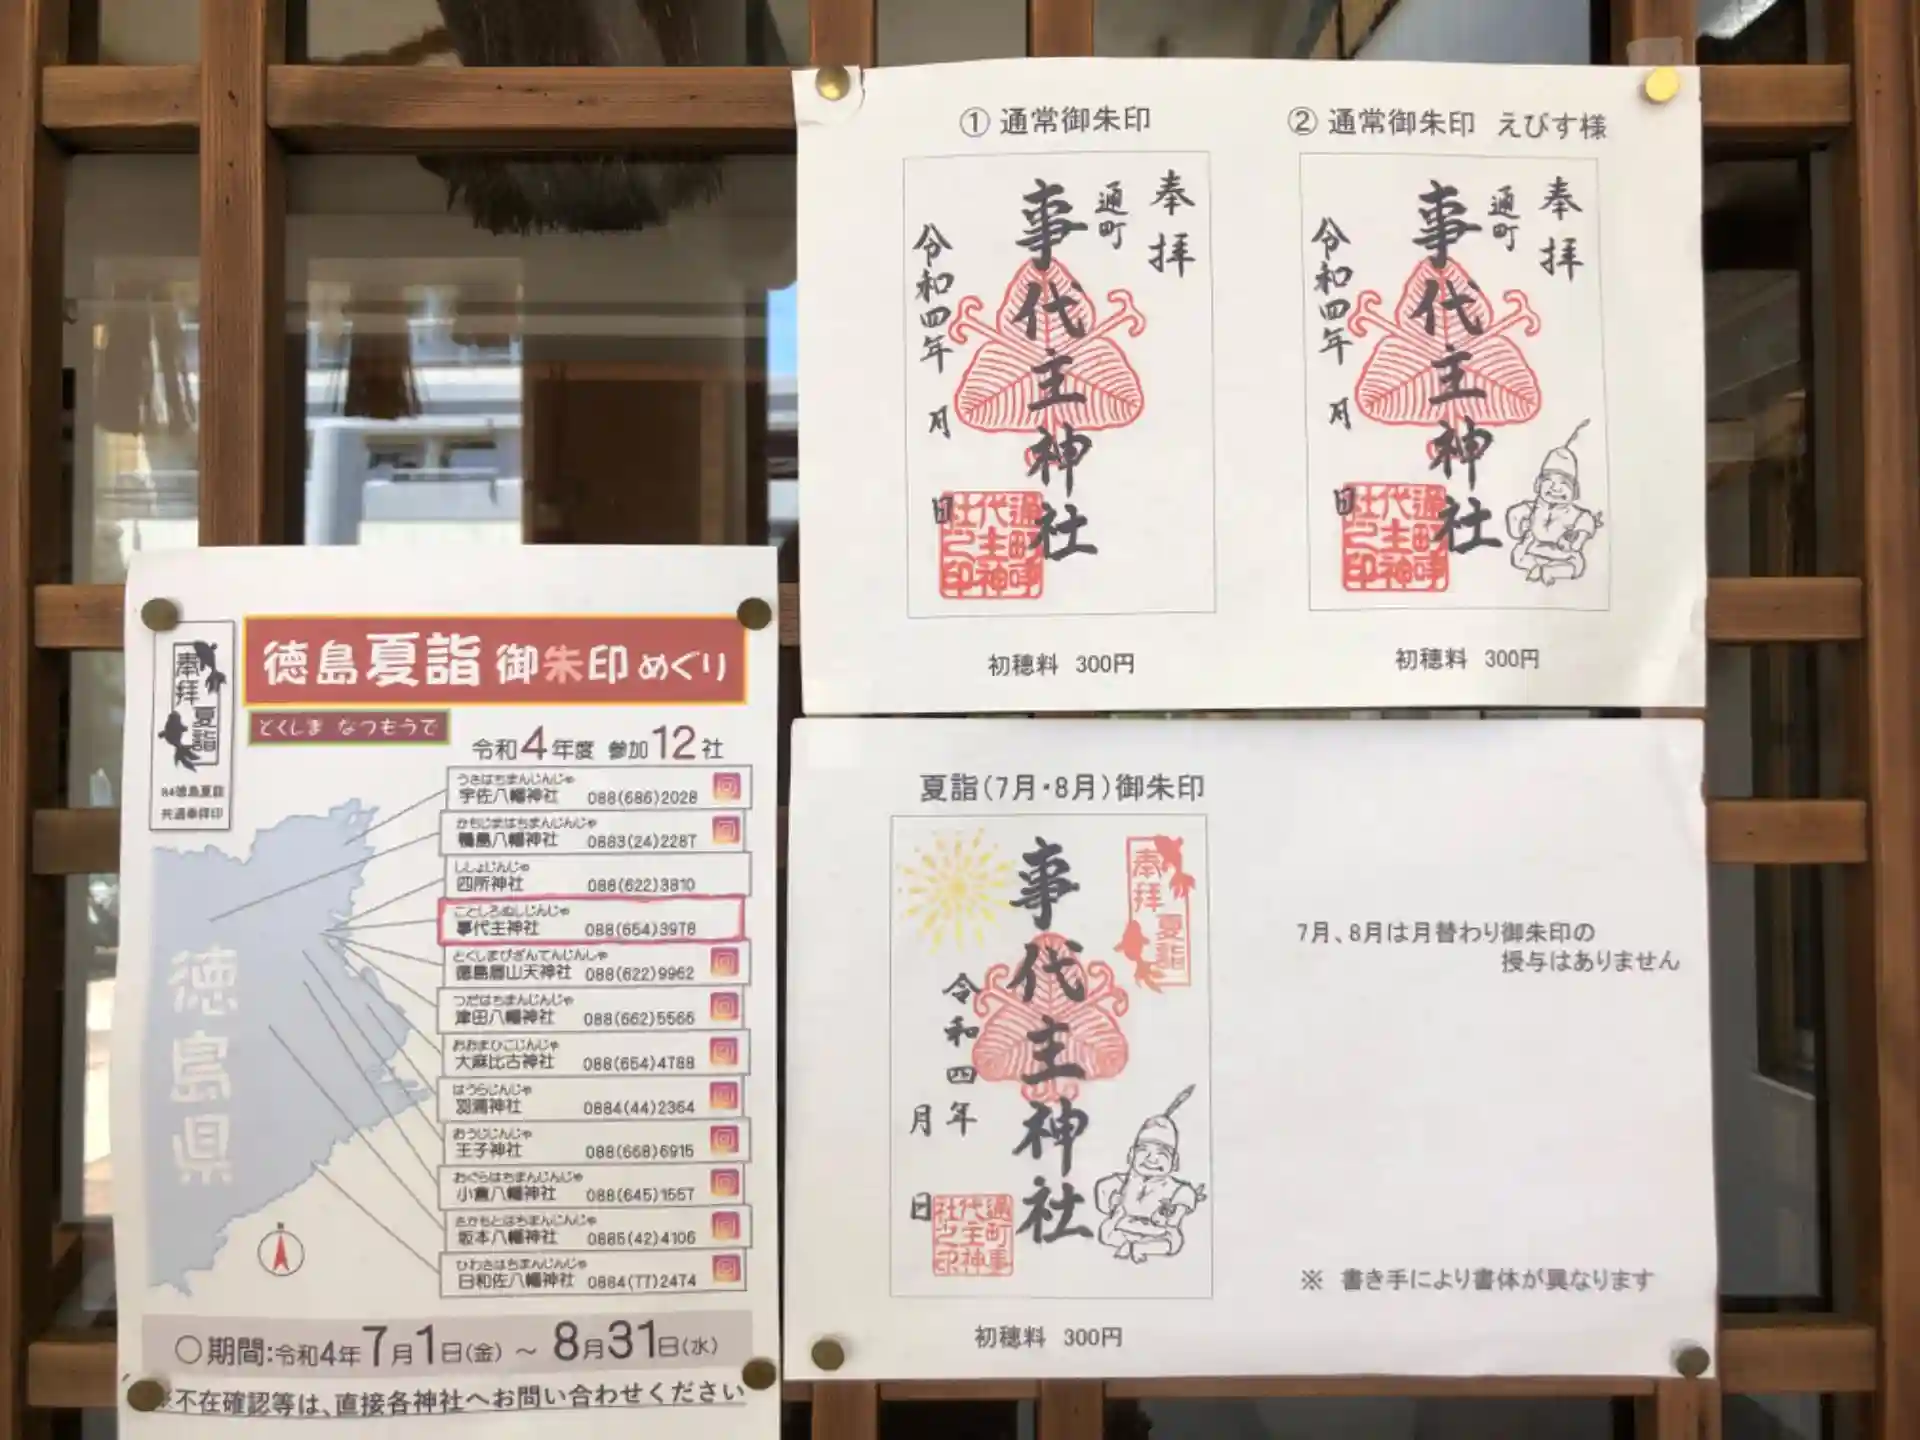 ① 通常御朱印
奉拝
通町
事代主神社
令和四年 月 日
通町事代主神社之印
初穂料 300円
② 通常御朱印 えびす様
奉拝
通町
事代主神社
令和四年 月 日
初穂料 300円
徳島夏詣 御朱印めぐり
とくしま なつもうで
奉拝
夏詣
共通奉拝印
令和4年度 参加12社
うさはちまんじんじゃ
宇佐八幡神社 088(686)2028
かもじまはちまんじんじゃ
鴨島八幡神社 0883(24)2287
ししょじんじゃ
四所神社 088(622)3810
ことしろぬしじんじゃ
事代主神社 088(654)3978
とくしまびざんてんじんしゃ
徳島眉山天神社 088(622)9962
つだはちまんじんじゃ
津田八幡神社 088(662)5566
おおまひこじんじゃ
大麻比古神社 088(654)4788
はうらじんじゃ
羽浦神社 0884(44)2364
おうじじんじゃ
王子神社 088(668)6915
おぐらはちまんじんじゃ
小倉八幡神社 088(645)1557
さかもとはちまんじんじゃ
坂本八幡神社 0885(42)4106
ひわさはちまんじんじゃ
日和佐八幡神社 0884(77)2474
徳島県
N
○期間:令和4年7月1日(金) ～ 8月31日(水)
※不在確認等は、直接各神社へお問い合わせください
夏詣(7月・8月)御朱印
奉拝
夏詣
事代主神社
令和四年
月 日
通町事代主神社之印
初穂料 300円
7月、8月は月替わり御朱印の
授与はありません
※ 書き手により書体が異なります